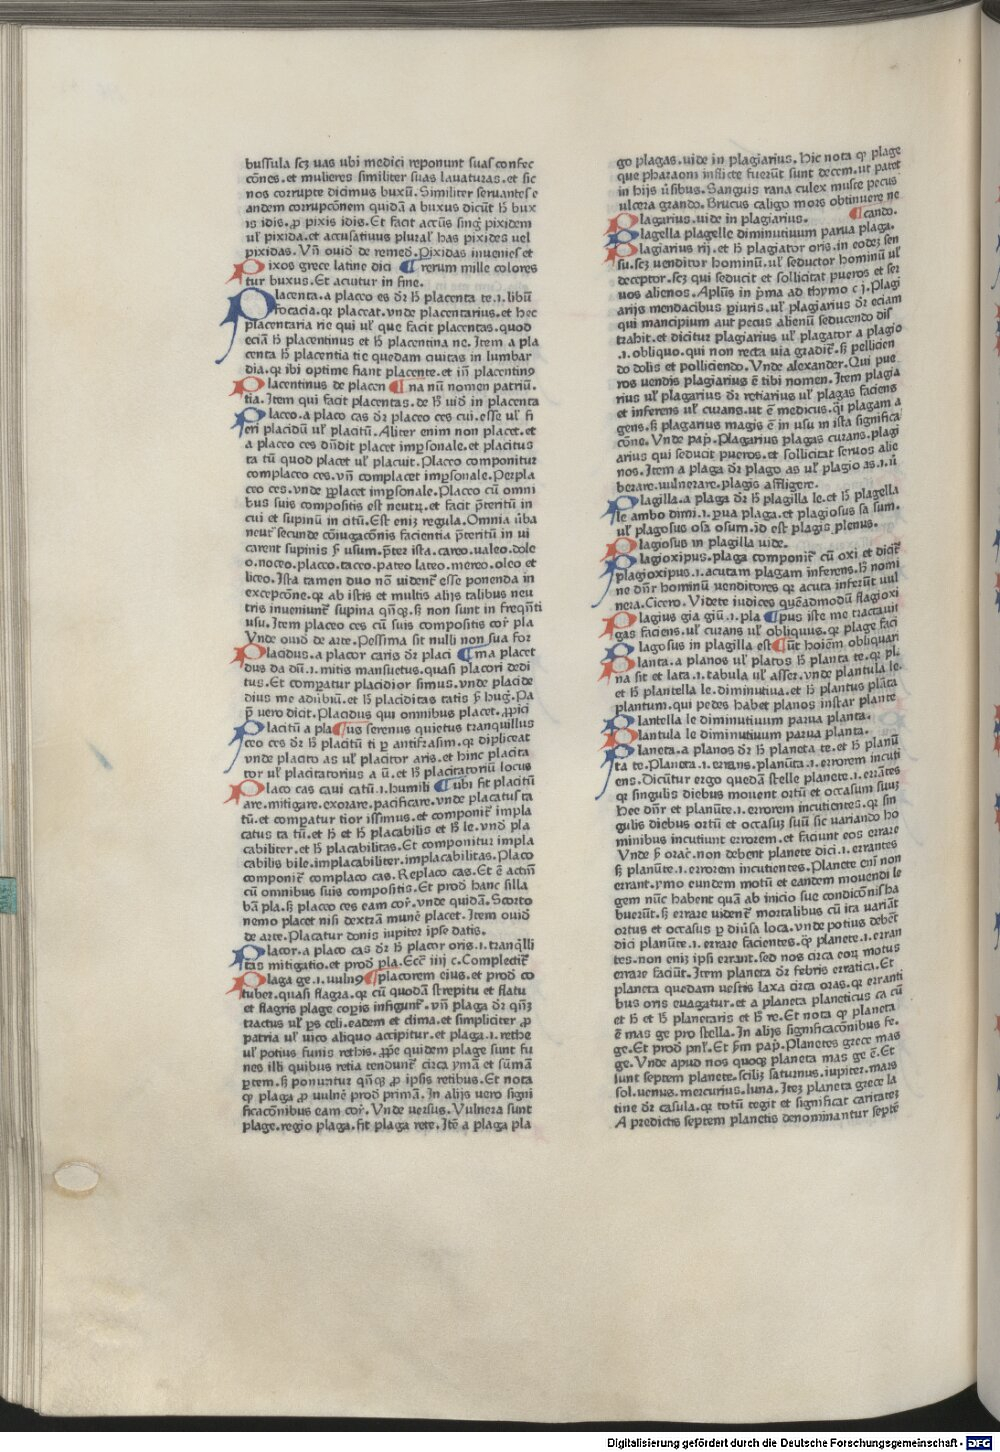 bussula scꝫ uas ubi medici reponunt suas confec
cōnes.et mulieres similiter suas lauaturas.et sic
nos corrupte dicimus buxū.Similiter seruantes e
andem corrupcōnem quidā a buxus dicūt ħ bux
is idis.ꝓ pixis idis.Et facit accūs singl̓ pixidem
ul̓ pixida.et accusatiuus plural̓ has pixides uel
pixidas.Vn̄ ouid̓ de remed̓.Pixidas inuenies et
Pixos grece latine dici ¶ rerum mille colores
tur buxus.Et acuitur in fine.
Placenta.a placeo es dr̄ ħ placenta te.ı.libū
focacia.qꝛ placeat.vnde placentarius.et hec
placentaria rie qui ul̓ que facit placentas.quod
eciā ħ placentinus et ħ placentina ne.Item a pla
centa ħ placentia tie quedam ciuitas in lumbar
dia.qꝛ ibi optime fiant placente.et in̄ placentinꝰ
Placentinus de placen ¶ na nū nomen patriū.
tia.Item qui facit placentas.de ħ uid̓ in placenta
Placeo.a placo cas dr̄ placeo ces cui.esse ul̓ fi
eri placidū ul̓ placitū.Aliter enim non placet.et
a placeo ces dn̄dit placet imꝑsonale.et placitus
ta tū quod placet ul̓ placuit.Placeo componitur
complaceo ces.vn̄ complacet imꝑsonale.Perpla
ceo ces.vnde ꝑplacet imꝑsonale.Placeo cū omni
bus suis compositis est neutꝝ.et facit p̄teritū in
cui et supinū in citū.Est eniꝫ regula.Omnia ūba
neut̓ secunde cōiugacōnis facientia p̄teritū in ui
carent supinis ẜ usum.p̄ter ista.careo.ualeo.dole
o.noceo.placeo.taceo.pateo lateo.mereo.oleo et
liceo.Ista tamen duo nō uident̓ esse ponenda in
excepcōne.qꝛ ab istis et multis alijs talibus neu
tris inueniunt̓ supina qn̄qꝫ.sꝫ non sunt in freqn̄ti
usu.Item placeo ces cū suis compositis cor̓ pla
Vnde ouid̓ de arte.Pessima sit nulli non sua for
Placidus.a placor caris dr̄ placi ¶ ma placet
dus da dū.ı.mitis mansuetus.quasi placori dedi
tus.Et comꝑatur placidior simus.vnde placide
dius me adūbiū.et ħ placiditas tatis ẜ hug̓.Pa
p̄ vero dicit.Placidus qui omnibus placet.ꝓpici
Placitū a pla ¶ us serenus quietus tranquillus
ceo ces dr̄ ħ placitū ti ꝑ antifrasim.qꝛ displiceat
vnde placito as ul̓ placitor aris.et hinc placita
tor ul̓ placitatorius a ū.et ħ placitatoriū locus
Placo cas caui catū.ı.humili ¶ ubi fit placitū
are.mitigare.exorare.pacificare.vnde placatus ta
tū.et comꝑatur tior issimus.et componit̓ impla
catus ta tū.et ħ et ħ placabilis et ħ le.vnd̓ pla
cabiliter.et ħ placabilitas.Et componitur impla
cabilis bile.implacabiliter.implacabilitas.Placo
componit̓ complaco cas.Replaco cas.Et ē actiū
cū omnibus suis compositis.Et prod̓ hanc silla
bā pla.sꝫ placeo ces eam cor̓.vnde quidā.Scorto
nemo placet nisi dextrā mune̓ placet.Item ouid̓
de arte.Placatur donis iupiter ipse datis.
Placor.a placo cas dr̄ ħ placor oris.ı.tranqlli
tas mitigatio.et prod̓ pla.Ecc̄ iiij c.Complectit̓
Plaga ge.ı.uulnꝰ ¶ placorem eius.et prod̓ co
tuber.quasi flagra.qꝛ cū quodā strepitu et flatu
et flagris plage corꝑis infigunt̓.vn̄ plaga dr̄ qn̄ꝫ
tractus ul̓ ꝑs celi.eadem et clima.et simpliciter ꝓ
patria ul̓ uico aliquo accipitur.et plaga.ı.rethe
ul̓ potius funis rethis.ꝓpe quidem plage sunt fu
nes illi quibus retia tendunt̓ circa ymā et sūmā
ꝑtem.sꝫ ponuntur qn̄qꝫ ꝓ ipsis retibus.Et nota
qꝫ plaga ꝓ uulne̓ prod̓ primā.In alijs vero signi
ficacōnibus eam cor̓.Vnde versus.Vulnera sunt
plage.regio plaga.fit plaga rete.Itē a plaga pla
go plagas.uide in plagiarius.Hic nota qꝫ plage
que pharaoni inflicte fuerūt sunt decem.ut patet
in hijs ūsibus.Sanguis rana culex musce pecus
ulcera grando.Brucus caligo mors obtinuere ne
Plagarius.uide in plagiarius. ¶ cando.
Plagella plagelle diminutiuum parua plaga.
Plagiarius rij.et ħ plagiator oris.in eodeꝫ sen
su.scꝫ venditor hominū.ul̓ seductor hominū ul̓
deceptor.scꝫ qui seducit et sollicitat pueros et ser
uos alienos.Apl̓us in p̄ma ad thymo c j.Plagi
arijs mendacibus ꝑiuris.ul̓ plagiarius dr̄ eciam
qui mancipium aut pecus alienū seducendo dis
trahit.et dicitur plagiarius ul̓ plagator a plagio
.ı.obliquo.qui non recta uia gradit̓.sꝫ pellicien
do dolis et polliciendo.Vnde alexander.Qui pue
ros uendis plagiarius ē tibi nomen.Item plagia
rius ul̓ plagarius dr̄ retiarius ul̓ plagas faciens
et inferens ul̓ curans.ut ē medicus.qi plagam a
gens.sꝫ plagarius magis ē in usu in ista significa
cōne.Vnde pap̓.Plagarius plagas curans.plagi
arius qui seducit pueros.et sollicitat seruos alie
nos.Item a plaga dr̄ plago as ul̓ plagio as.ı.ū
berare.uulnerare.plagis affligere.
Plagilla.a plaga dr̄ ħ plagilla le.et ħ plagella
le ambo dimi.ı.ꝑua plaga.et plagiosus sa sum.
ul̓ plagosus osa osum.id est plagis plenus.
Plagiosus in plagilla uide.
Plagioxipus.plaga componit̓ cū oxi et dicit̓
plagioxipus.ı.acutam plagam inferens.ħ nomi
ne dn̄r hominū uenditores qꝛ acuta inferūt uul
nera.Cicero.Videte iudices quēadmodū flagioxi
Plagius gia giū.ı.pla ¶ pus iste me tractauit
gas faciens.ul̓ curans ul̓ obliquus.qꝛ plage faci
Plagosus in plagilla est ¶ ūt hoīem obliquari
Planta.a planos ul̓ platos ħ planta te.qꝛ pl̓
na sit et lata.ı.tabula ul̓ asser.vnde plantula le.
et ħ plantella le.diminutiua.et ħ plantus plāta
plantum.qui pedes habet planos instar plante
Plantella le diminutiuum parua planta.
Plantula le diminutiuum parua planta.
Planeta.a planos dr̄ ħ planeta te.et ħ planū
ta te.Planeta.ı.errans.planūta.ı.errorem incuti
ens.Dicūtur ergo quedā stelle planete.ı.errātes
qꝛ singulis diebus mouent ortū et occasum suuꝫ
Hec dn̄r et planūte.ı.errorem incutientes.qꝛ sin
gulis diebus ortū et occasuꝫ suū sic variando ho
minibus incutiunt errorem.et faciunt eos errare
Vnde ẜ orac̓.non debent planete dici.ı.errantes
sꝫ planūte.ı.errorem incutientes.Planete eni̓ non
errant.ymo eundem motū et eandem mouendi le
gem nūc habent quā ab inicio sue condicōnis ha
buerūt.sꝫ errare uident̓ mortalibus cū ita variāt
ortus et occasus ꝑ diūsa loca.vnde potius debēt
dici planūte.ı.errare facientes.qꝫ planete.ı.erran
tes.non eniꝫ ipsi errant.sed nos circa eoꝝ motus
errare faciūt.Item planeta dr̄ febris erratica.Et
planeta quedam uestis laxa circa oras.qꝛ erranti
bus oris euagatur.et a planeta planeticus ca cū
et ħ et ħ planetaris et ħ re.Et nota qꝫ planeta
ē mas ge pro stella.In alijs significacōnibus fe.
ge.Et prod̓ pnl̓.Et ẜm pap̓.Planetes grece mas
ge.Vnde apud nos quoqꝫ planeta mas ge ē.Et
sunt septem planete.sciliꝫ saturnus.iupiter.mars
sol.uenus.mercurius.luna.Iteꝫ planeta grece la
tine dr̄ casula.qꝛ totū tegit et significat caritateꝫ
A predictis septem planetis denominantur septē
Digitalisierung gefördert durch die Deutsche Forschungsgemeinschaft - DFG